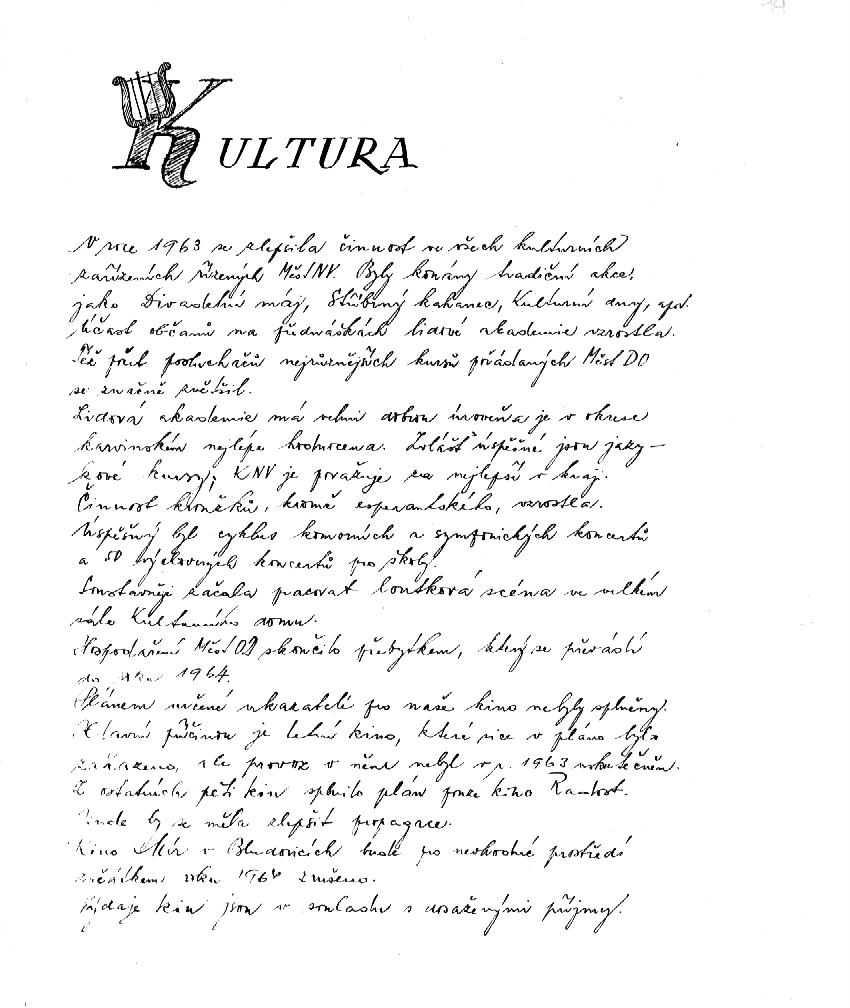 19
KULTURA
V roce 1963 se zlepšila činnost ve všech kulturních
zařízeních řízených MěstNV. Byly konány tradiční akce,
jako Divadelní máj, Stříbrný kahanec, Kulturní dny, apod.
Účast občanů na přednáškách lidové akademie vzrostla.
Též počet posluchačů nejrůznějších kursů pořádaných Měst DO
se značně zvětšil.
Lidová akademie má velmi dobrou úroveň a je v okrese
karvinském nejlépe hodnocena. Zvlášť úspěšné jsou jazy-
kové kursy; KNV je považuje za nejlepší v kraji.
Činnost kroužků, kromě esperantského, vzrostla.
Úspěšný byl cyklus komorních a symfonických koncertů
a 50 výchovných koncertů pro školy.
Soustavněji začala pracovat loutková scéna ve velkém
sále Kulturního domu.
Hospodaření Měst OD skončilo přebytkem, který se převádí
do roku 1964.
Plánem určené ukazatelé pro naše kino nebyly splněny.
Hlavní příčinou je letní kino, které sice v plánu bylo
zařazeno, ale provoz v něm nebyl v r. 1963 uskutečněn.
Z ostatních pěti kin splnilo plán pouze kino Radost.
Jinde by se měla zlepšit propagace.
Kino Mír v Bludovicích bude pro nevhodné prostředí
začátkem roku 1964 zrušeno.
Výdaje kin jsou v souladu s dosaženými příjmy.